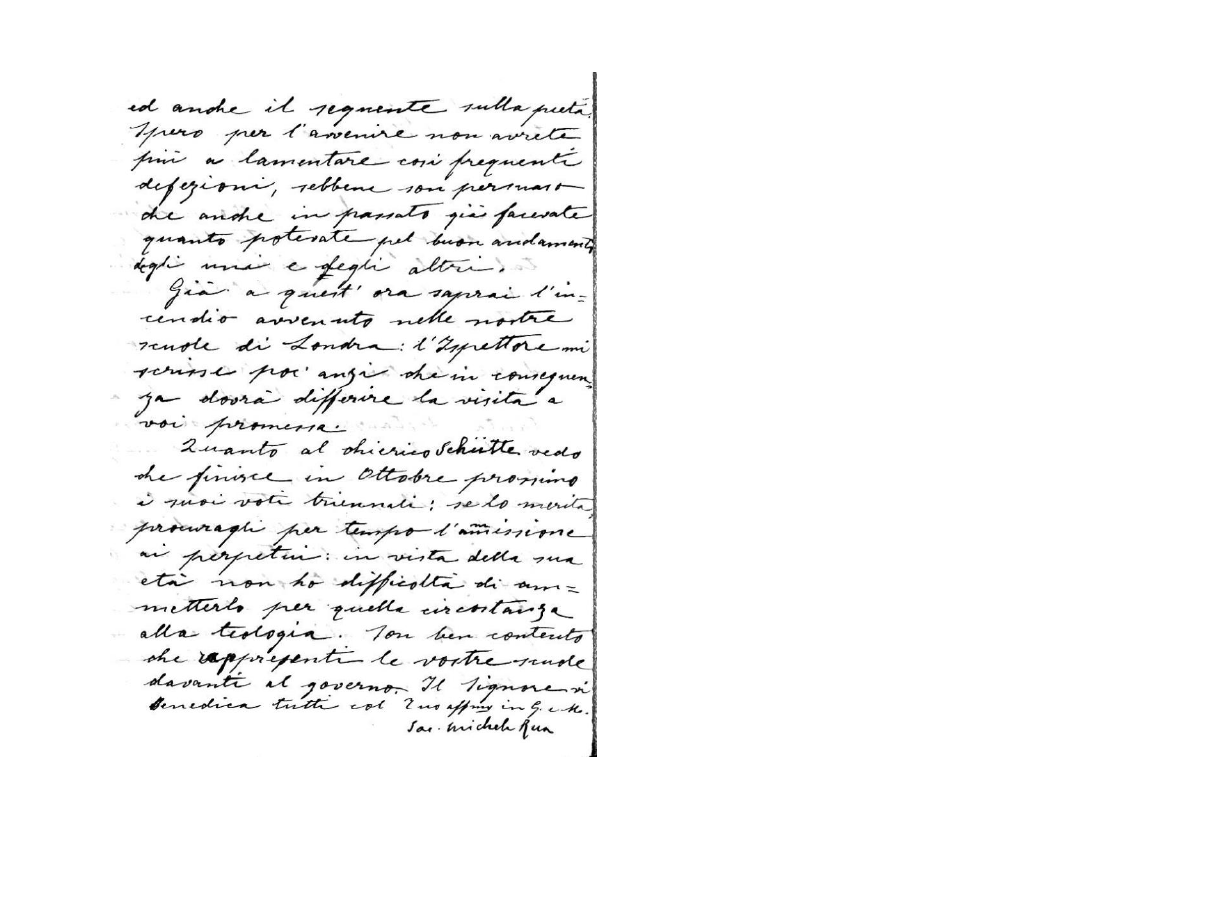 ed anche il seguente sulla pietà.
Spero per l'avvenire non avrete
più a lamentare così frequenti
defezioni, sebbene son persuaso
che anche in passato già facevate
quanto potevate pel buon andamento
degli uni e degli altri.
Già a quest' ora saprai l'in=
cendio avvenuto nelle nostre
scuole di Londra: l'Ispettore mi
scrisse poc' anzi che in conseguen=
za dovrà differire la visita a
voi promessa.
Quanto al chierico Schütte vedo
che finisce in Ottobre prossimo
i suoi voti triennali: se lo merita,
procuragli per tempo l'ammissione
ai perpetui: in vista della sua
età non ho difficoltà di am=
metterlo per quella circostanza
alla teologia. Son ben contento
che rappresenti le vostre scuole
davanti al governo. Il Signore vi
Benedica tutti col Tuo affmo in G. e M.
Sac. Michele Rua